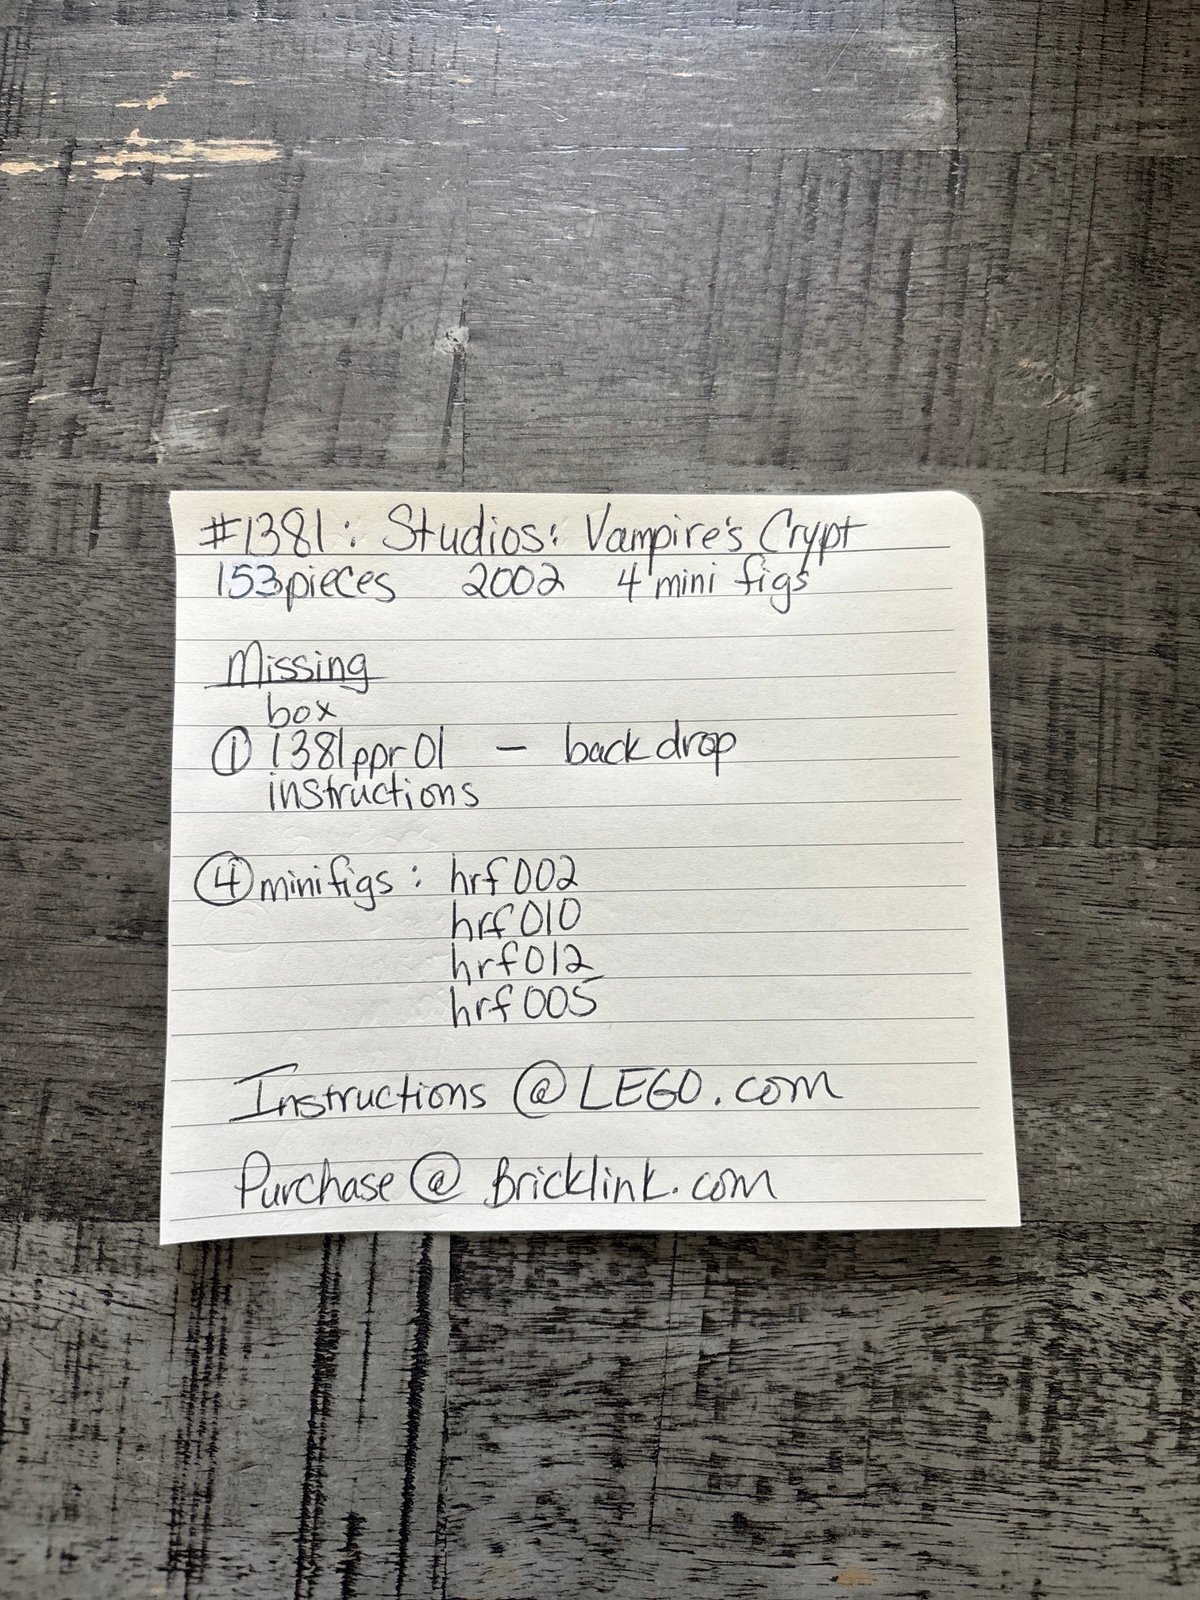 #1381: Studios: Vampire's Crypt
153pieces 2002 4 mini figs
Missing
box
① 1381ppr01 – backdrop
instructions
④ minifigs: hrf002
hrf010
hrf012
hrf005
Instructions @ LEGO.com
Purchase @ Bricklink.com